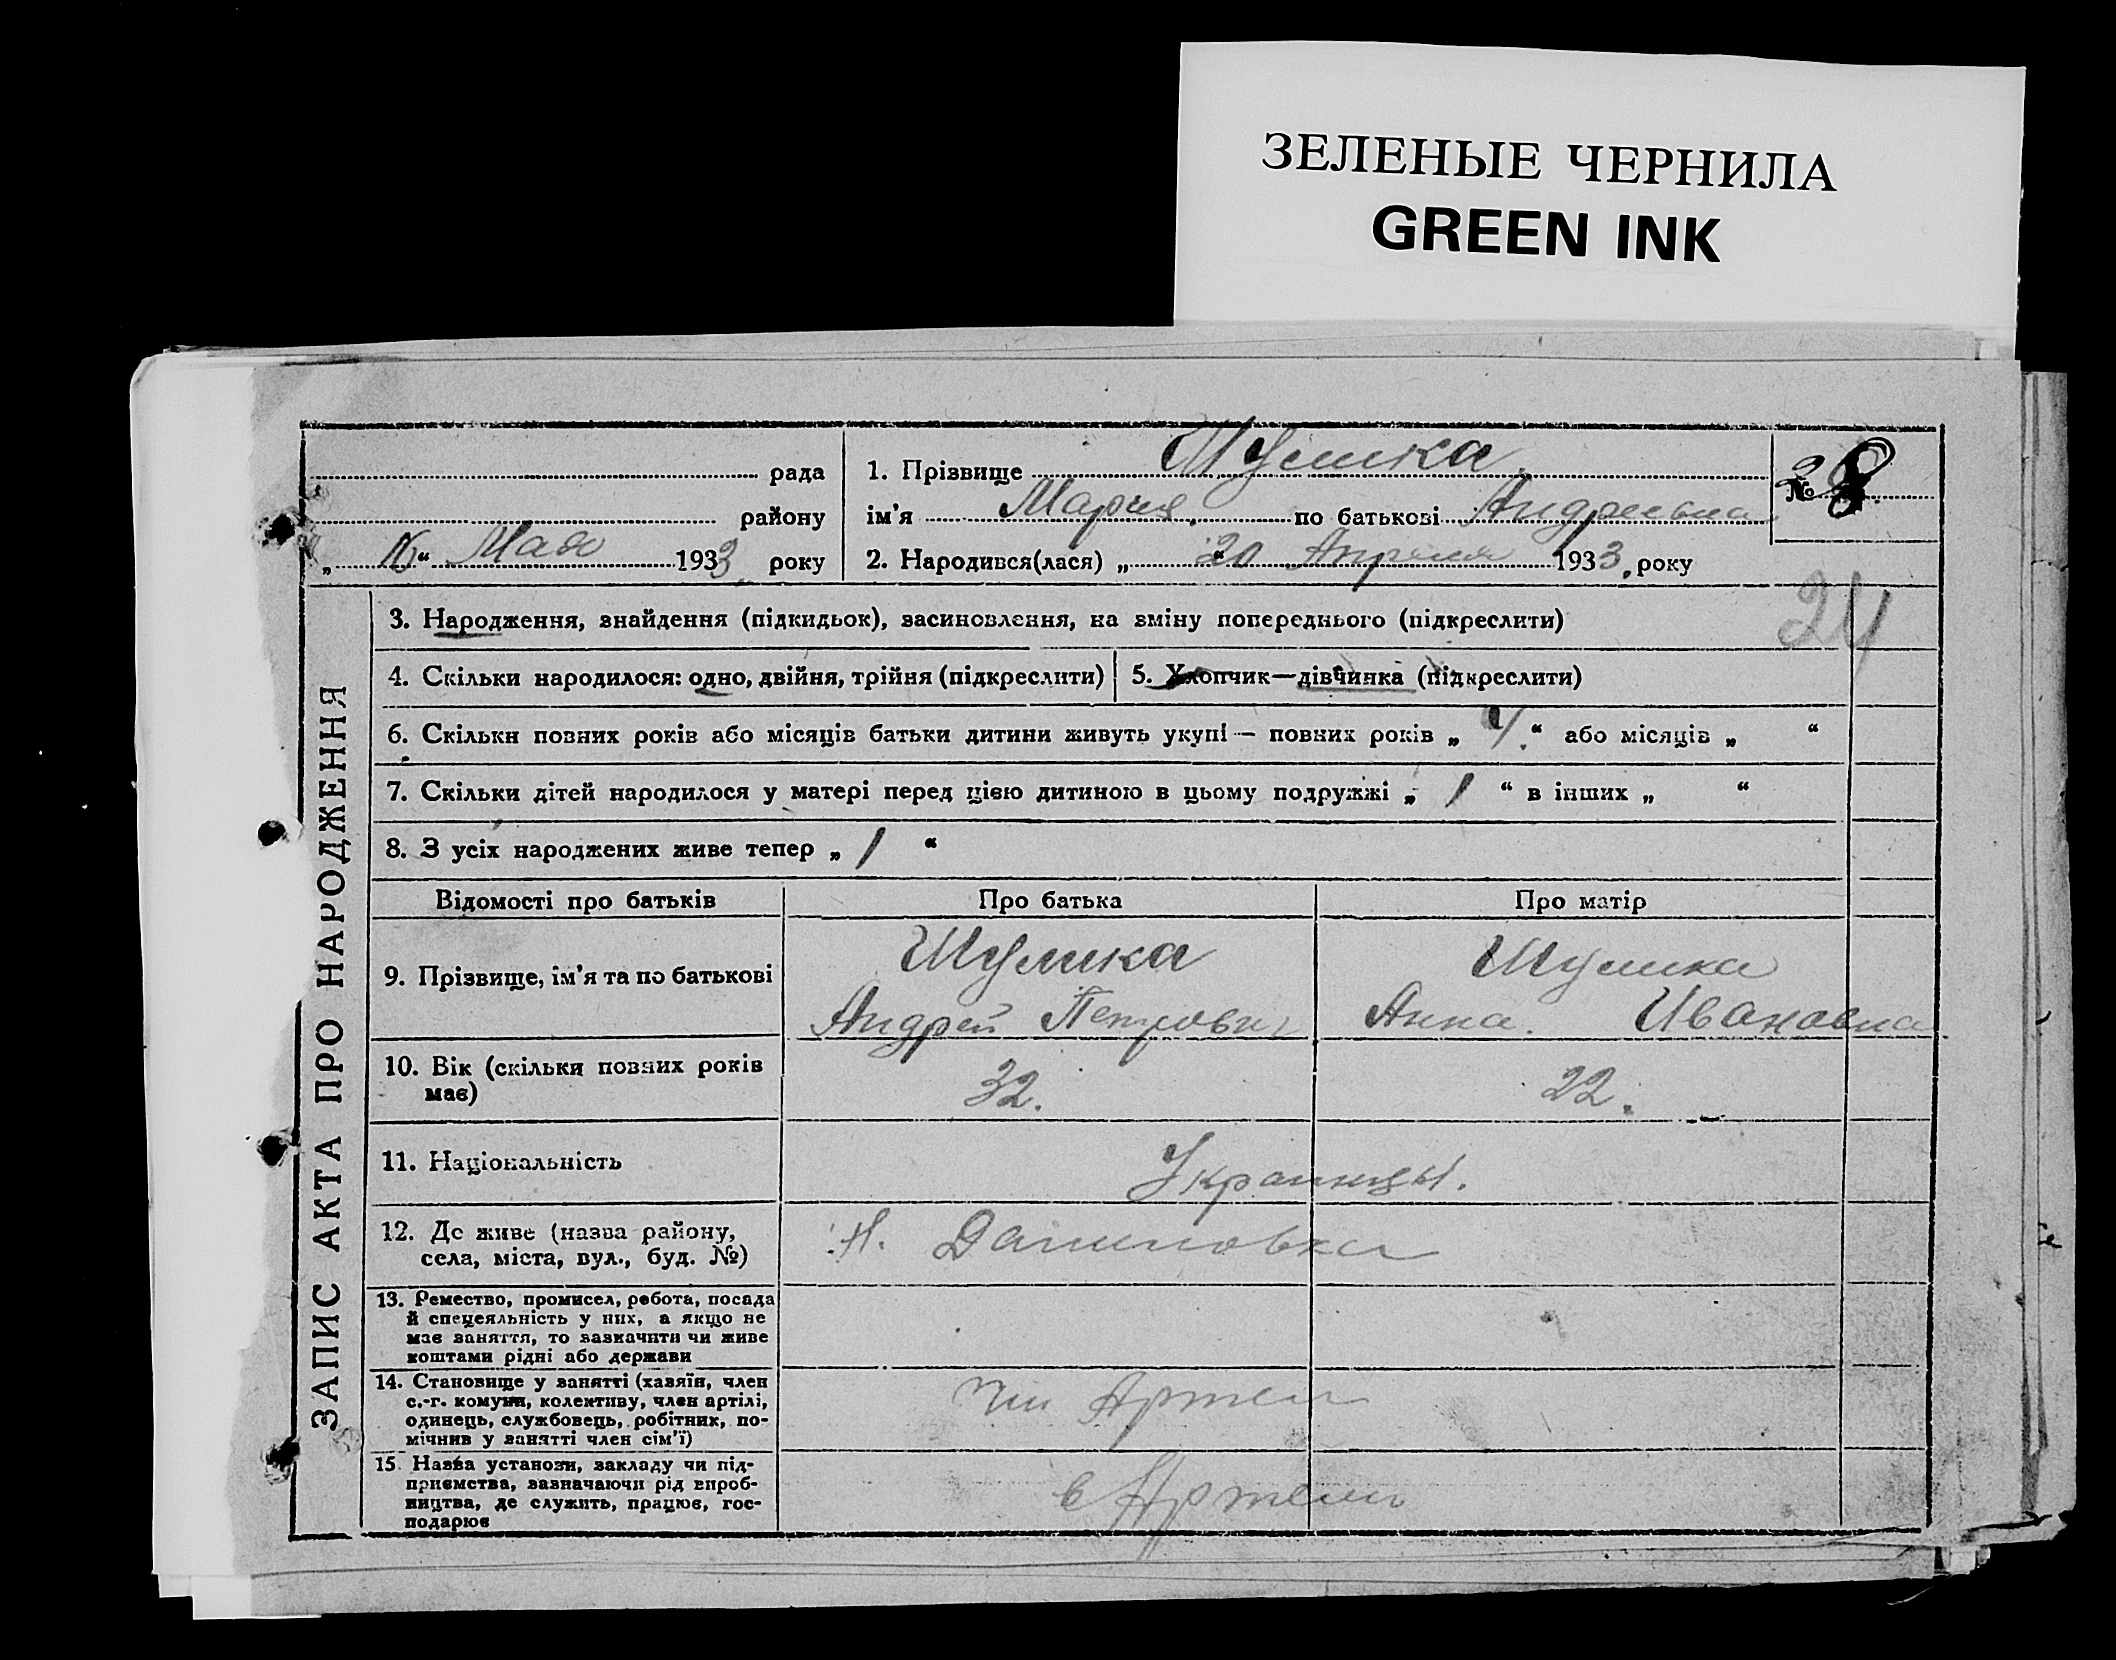 ЗЕЛЕНЫЕ ЧЕРНИЛА
GREEN INK
рада
району
„ 16 “ Мая 1933 року
1. Прізвище Шулика
ім'я Мария по батькові Андреевна
2. Народився(лася) „ 20 “ Апреля 1933 року
№ 8
24
3. Народження, знайдення (підкидьок), засиновлення, на зміну попереднього (підкреслити)
4. Скільки народилося: одно, двійня, трійня (підкреслити)
5. Хлопчик—дівчинка (підкреслити)
6. Скільки повних років або місяців батьки дитини живуть укупі — повних років „ 4 “ або місяців „ “
7. Скільки дітей народилося у матері перед цією дитиною в цьому подружжі „ 1 “ в інших „ “
8. З усіх народжених живе тепер „ 1 “
Відомості про батьків Про батька Про матір
9. Прізвище, ім'я та по батькові
Шулика
Андрей Петрович
Шулика
Анна Ивановна
10. Вік (скільки повних років
має)
32. 22.
11. Національність Украинцы.
12. Де живе (назва району,
села, міста, вул., буд. №)
Н.
13. Ремество, промисел, робота, посада
й спецеяльність у них, а якщо не
має заняття, то зазначити чи живе
коштами рідні або держави
14. Становище у занятті (хазяїн, член
с.-г. комуни, колективу, член артілі,
одинець, службовець, робітник, по-
мічнив у занятті член сім'ї)
Чл Артели
15. Назва установи, закладу чи під-
приємства, зазначаючи рід вироб-
ництва, де служить, працює, гос-
подарює
в Артели
ЗАПИС АКТА ПРО НАРОДЖЕННЯ